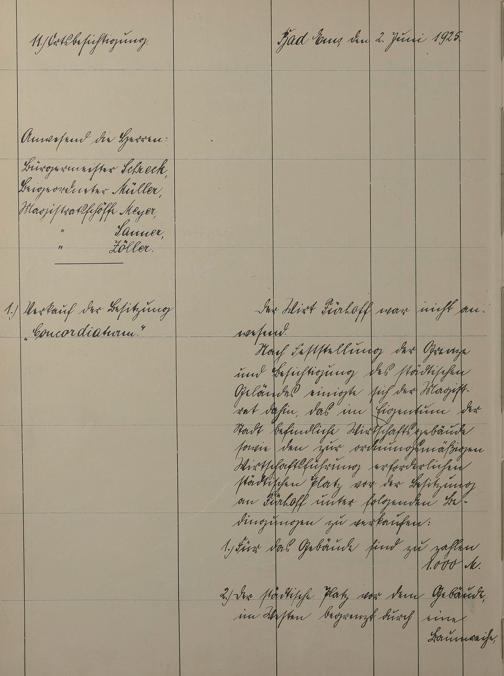 11.) Ortsbesichtigung.
Bad Ems, den 2. Juni 1925.
Anwesend die Herren:
Bürgermeister Schreck,
Beigeordneter Müller,
Magistratsschöffe Meyer,
" Sanner,
" Zöller.
1.) Verkauf der Besitzung
„Concordiaturm"
Der Wirt war nicht an-
wesend.
Nach Feststellung der Grenze
und Besichtigung des städtischen
Geländes einigte sich der Magist-
rat dahin, das im Eigentum der
Stadt befindliche Wirtschaftsgebäude
sowie den zur ordnungsmäßigen
Wirtschaftsführung erforderlichen
städtischen Platz vor der Besitzung
an unter folgenden Be-
dingungen zu verkaufen:
1.) Für das Gebäude sind zu zahlen
1.000 M.
2.) Der städtische Platz vor dem Gebäude,
im Westen begrenzt durch eine
Baumreihe,